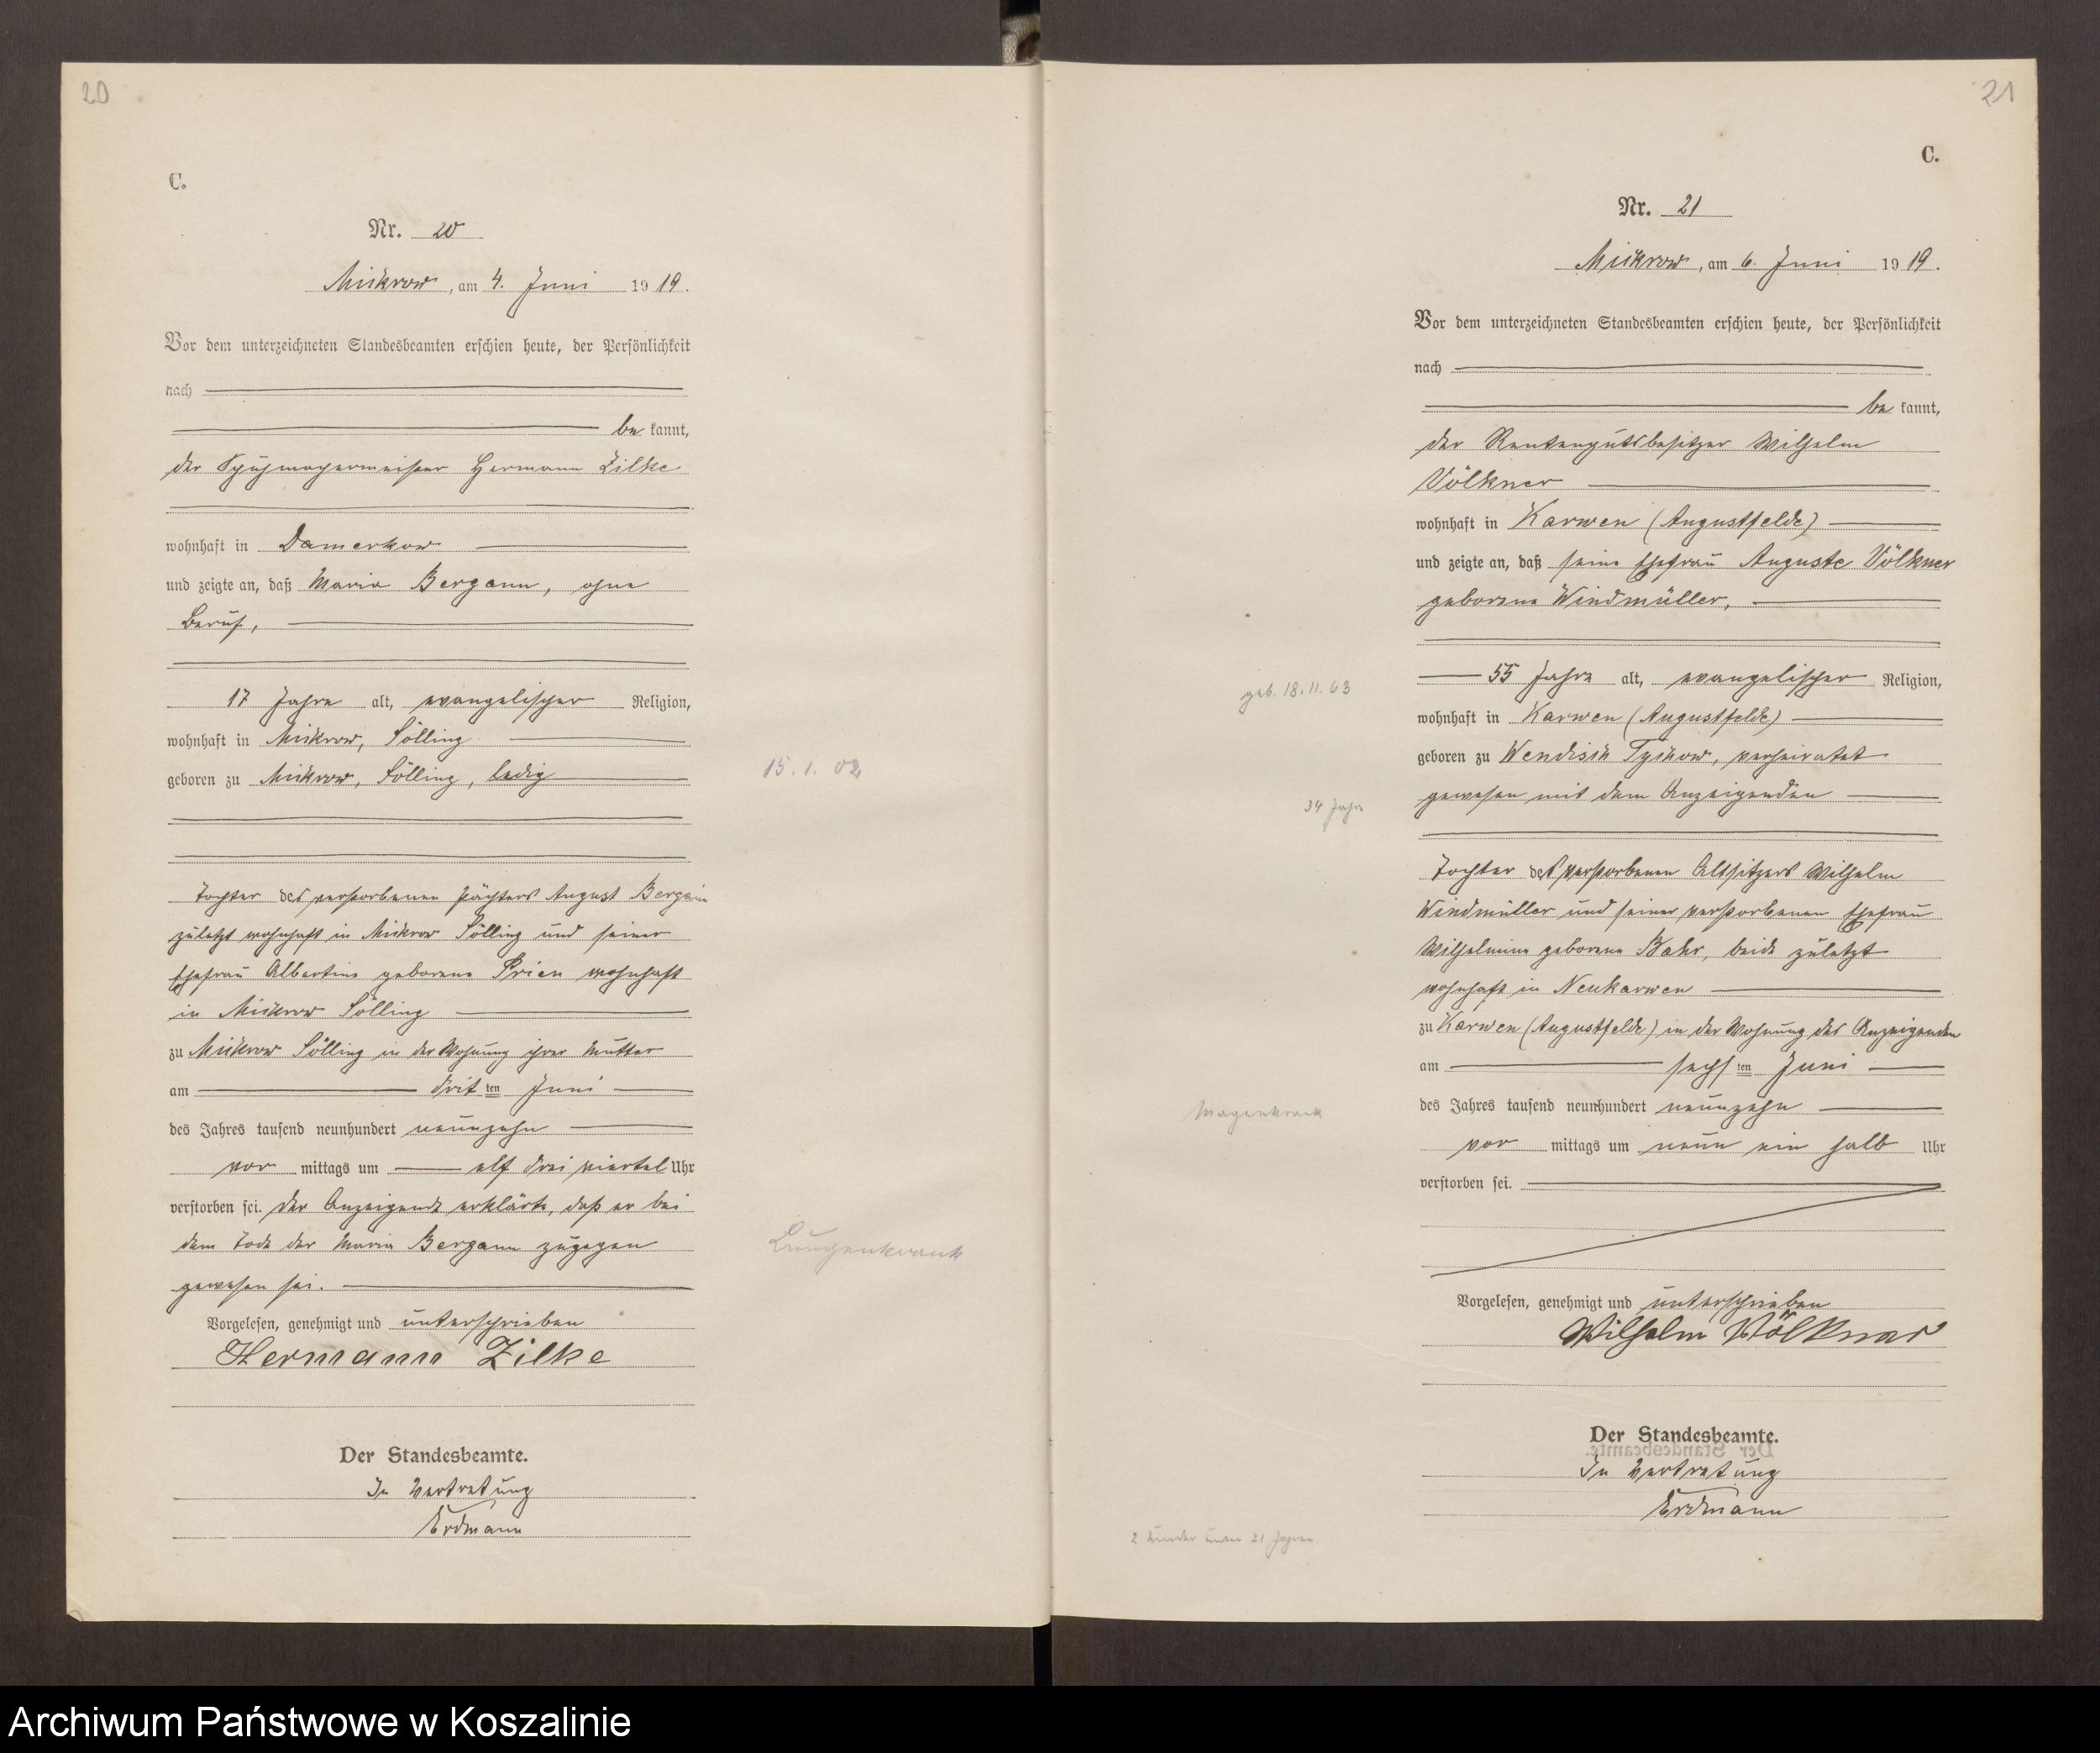 20
C.
Nr. 20
Mickrow, am 4. Juni 1919.
Vor dem unterzeichneten Standesbeamten erschien heute, der Persönlichkeit
nach
be kannt,
der Schuhmachermeister Hermann Zilke
wohnhaft in Damerkow
und zeigte an, daß Maria Bergann, ohne
Beruf,
17 Jahre alt, evangelischer Religion,
wohnhaft in Mickrow, Sölling
geboren zu Mickrow, Sölling, ledig
15. 1. 02
Tochter des verstorbenen Pächters August Bergann
zuletzt wohnhaft in Mickrow Sölling und seiner
Ehefrau Albertine geborene Prien wohnhaft
in Mickrow Sölling
zu Mickrow Sölling in der Wohnung ihrer Mutter
am dritten Juni
des Jahres tausend neunhundert neunzehn
vor mittags um elf drei viertel Uhr
verstorben sei. Der Anzeigende erklärte, daß er bei
dem Tode der Maria Bergann zugegen
Lungenkrank
gewesen sei.
Vorgelesen, genehmigt und unterschrieben
Hermann Zilke
Der Standesbeamte.
In Vertretung
Erdmann
21
C.
Nr. 21
Mickrow, am 6. Juni 1919.
Vor dem unterzeichneten Standesbeamten erschien heute, der Persönlichkeit
nach
be kannt,
der Rentengutsbesitzer Wilhelm
Völkner
wohnhaft in Karwen (Augustfelde)
und zeigte an, daß seine Ehefrau Auguste Völkner
geborene Windmüller,
55 Jahre alt, evangelischer Religion,
geb. 18. 11. 63
wohnhaft in Karwen (Augustfelde)
geboren zu Wendisch Tychow, verheiratet
gewesen mit dem Anzeigenden
34 Jahre
Tochter des verstorbenen Altsitzers Wilhelm
Windmüller und seiner verstorbenen Ehefrau
Wilhelmine geborene Bahr, beide zuletzt
wohnhaft in Neukarwen
zu Karwen (Augustfelde) in der Wohnung des Anzeigenden
am sechsten Juni
des Jahres tausend neunhundert neunzehn
Magenkrank
vor mittags um neun ein halb Uhr
verstorben sei.
Vorgelesen, genehmigt und unterschrieben
Wilhelm Völkner
Der Standesbeamte.
In Vertretung
Erdmann
2 Kinder unter 21 Jahren
Archiwum Państwowe w Koszalinie